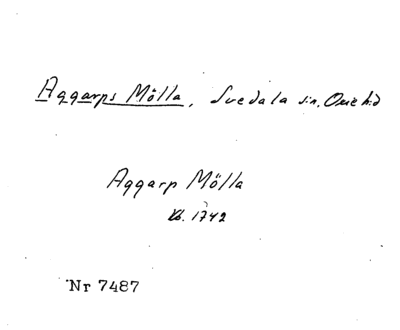 Aggarps Mölla, Svedala sn. Oxie hd
Aggarp Mölla
Kb. 1742
Nr 7487